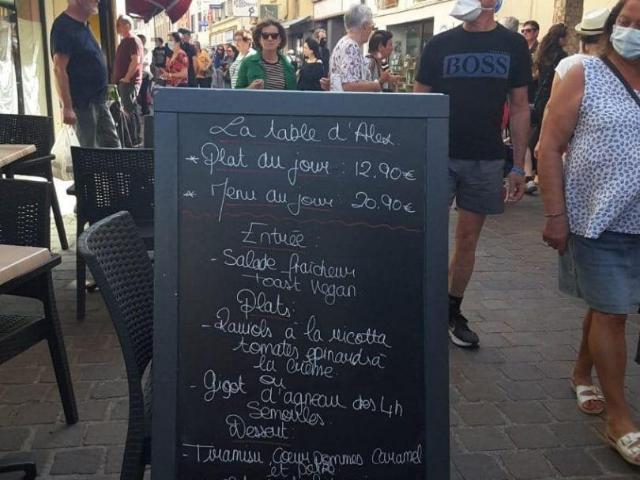 BOSS
La table d'Alex
* Plat du jour : 12.90€
* Menu du jour : 20.90€
Entrée :
- Salade fraîcheur
Toast vegan
Plats :
- Raviolis à la ricotta
tomates épinards à
la crème.
ou
- Gigot d'agneau des 4h
Semoulles.
Dessert :
- Tiramisu cœur pommes caramel
et